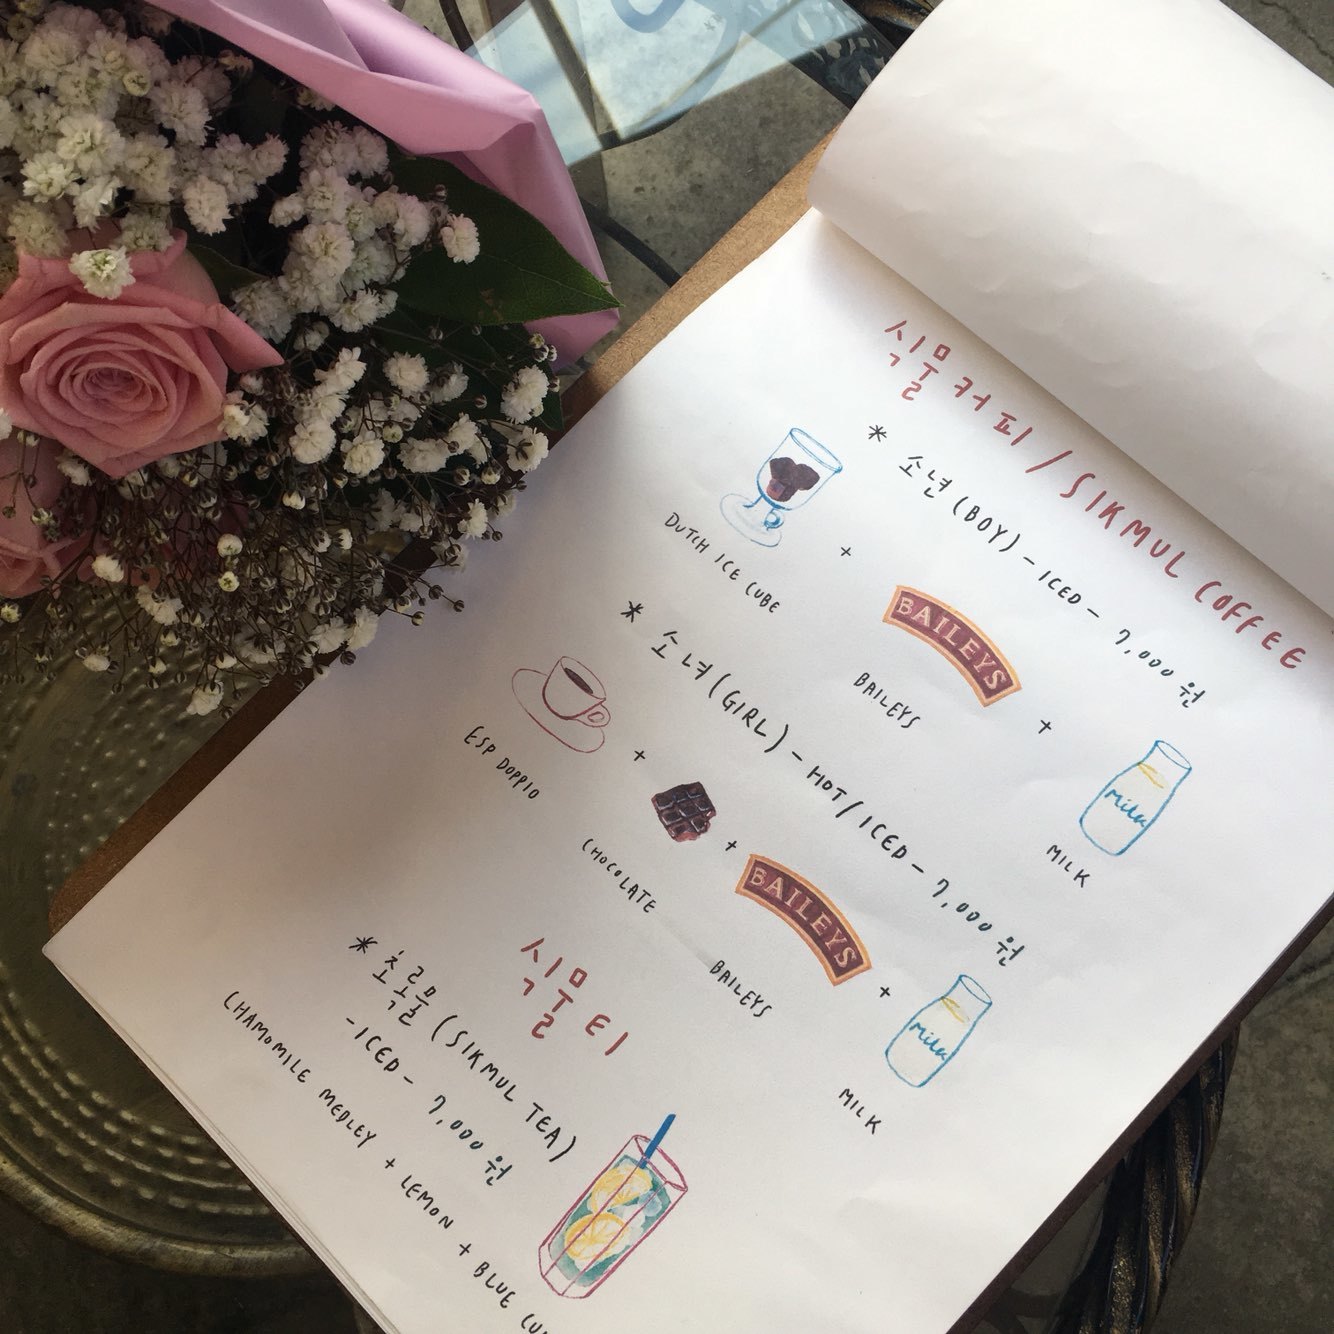 식물 커피 / SIKMUL COFFEE
* 소년 (BOY) - ICED - 7,000원
DUTCH ICE CUBE + BAILEYS BAILEYS + Milk MILK
* 소녀 (GIRL) - HOT / ICED - 7,000원
ESP DOPPIO + CHOCOLATE + BAILEYS BAILEYS + Milk MILK
식물 티
* 초록물 (SIKMUL TEA)
- ICED - 7,000원
CHAMOMILE MEDLEY + LEMON + BLUE